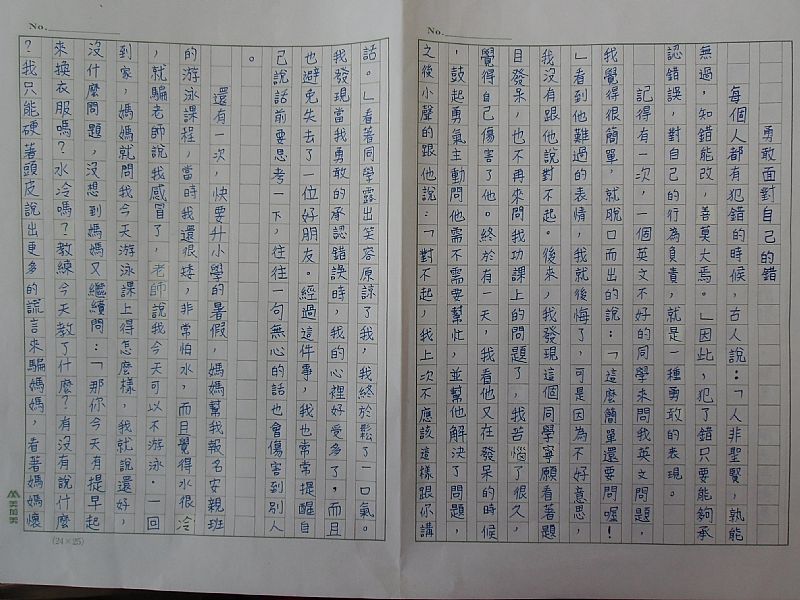 No.
勇敢面對自己的錯
每個人都有犯錯的時候，古人說：「人非聖賢，孰能
無過，知錯能改，善莫大焉。」因此，犯了錯只要能夠承
認錯誤，對自己的行為負責，就是一種勇敢的表現。
記得有一次，一個英文不好的同學來問我英文問題，
我覺得很簡單，就脫口而出的說：「這麼簡單還要問喔！
」看到他難過的表情，我就後悔了，可是因為不好意思，
我沒有跟他說對不起。後來，我發現這個同學寧願看著題
目發呆，也不再來問我功課上的問題了，我苦惱了很久，
覺得自己傷害了他。終於有一天，我看他又在發呆的時候
，鼓起勇氣主動問他需不需要幫忙，並幫他解決了問題，
之後小聲的跟他說：「對不起，我上次不應該這樣跟你講
No.
話。」看著同學露出笑容原諒了我，我終於鬆了一口氣。
我發現當我勇敢的承認錯誤時，我的心裡好受多了，而且
也避免失去了一位好朋友。經過這件事，我也常常提醒自
己說話前要思考一下，往往一句無心的話也會傷害到別人
。
還有一次，快要升小學的暑假，媽媽幫我報名安親班
的游泳課程，當時我還很矮，非常怕水，而且覺得水很冷
，就騙老師說我感冒了，老師說我今天可以不游泳。一回
到家，媽媽就問我今天游泳課上得怎麼樣，我就說還好，
沒什麼問題，沒想到媽媽又繼續問：「那你今天有提早起
來換衣服嗎？水冷嗎？教練今天教了什麼？有沒有說什麼
？我只能硬著頭皮說出更多的謊言來騙媽媽，看著媽媽懷
(24×25)